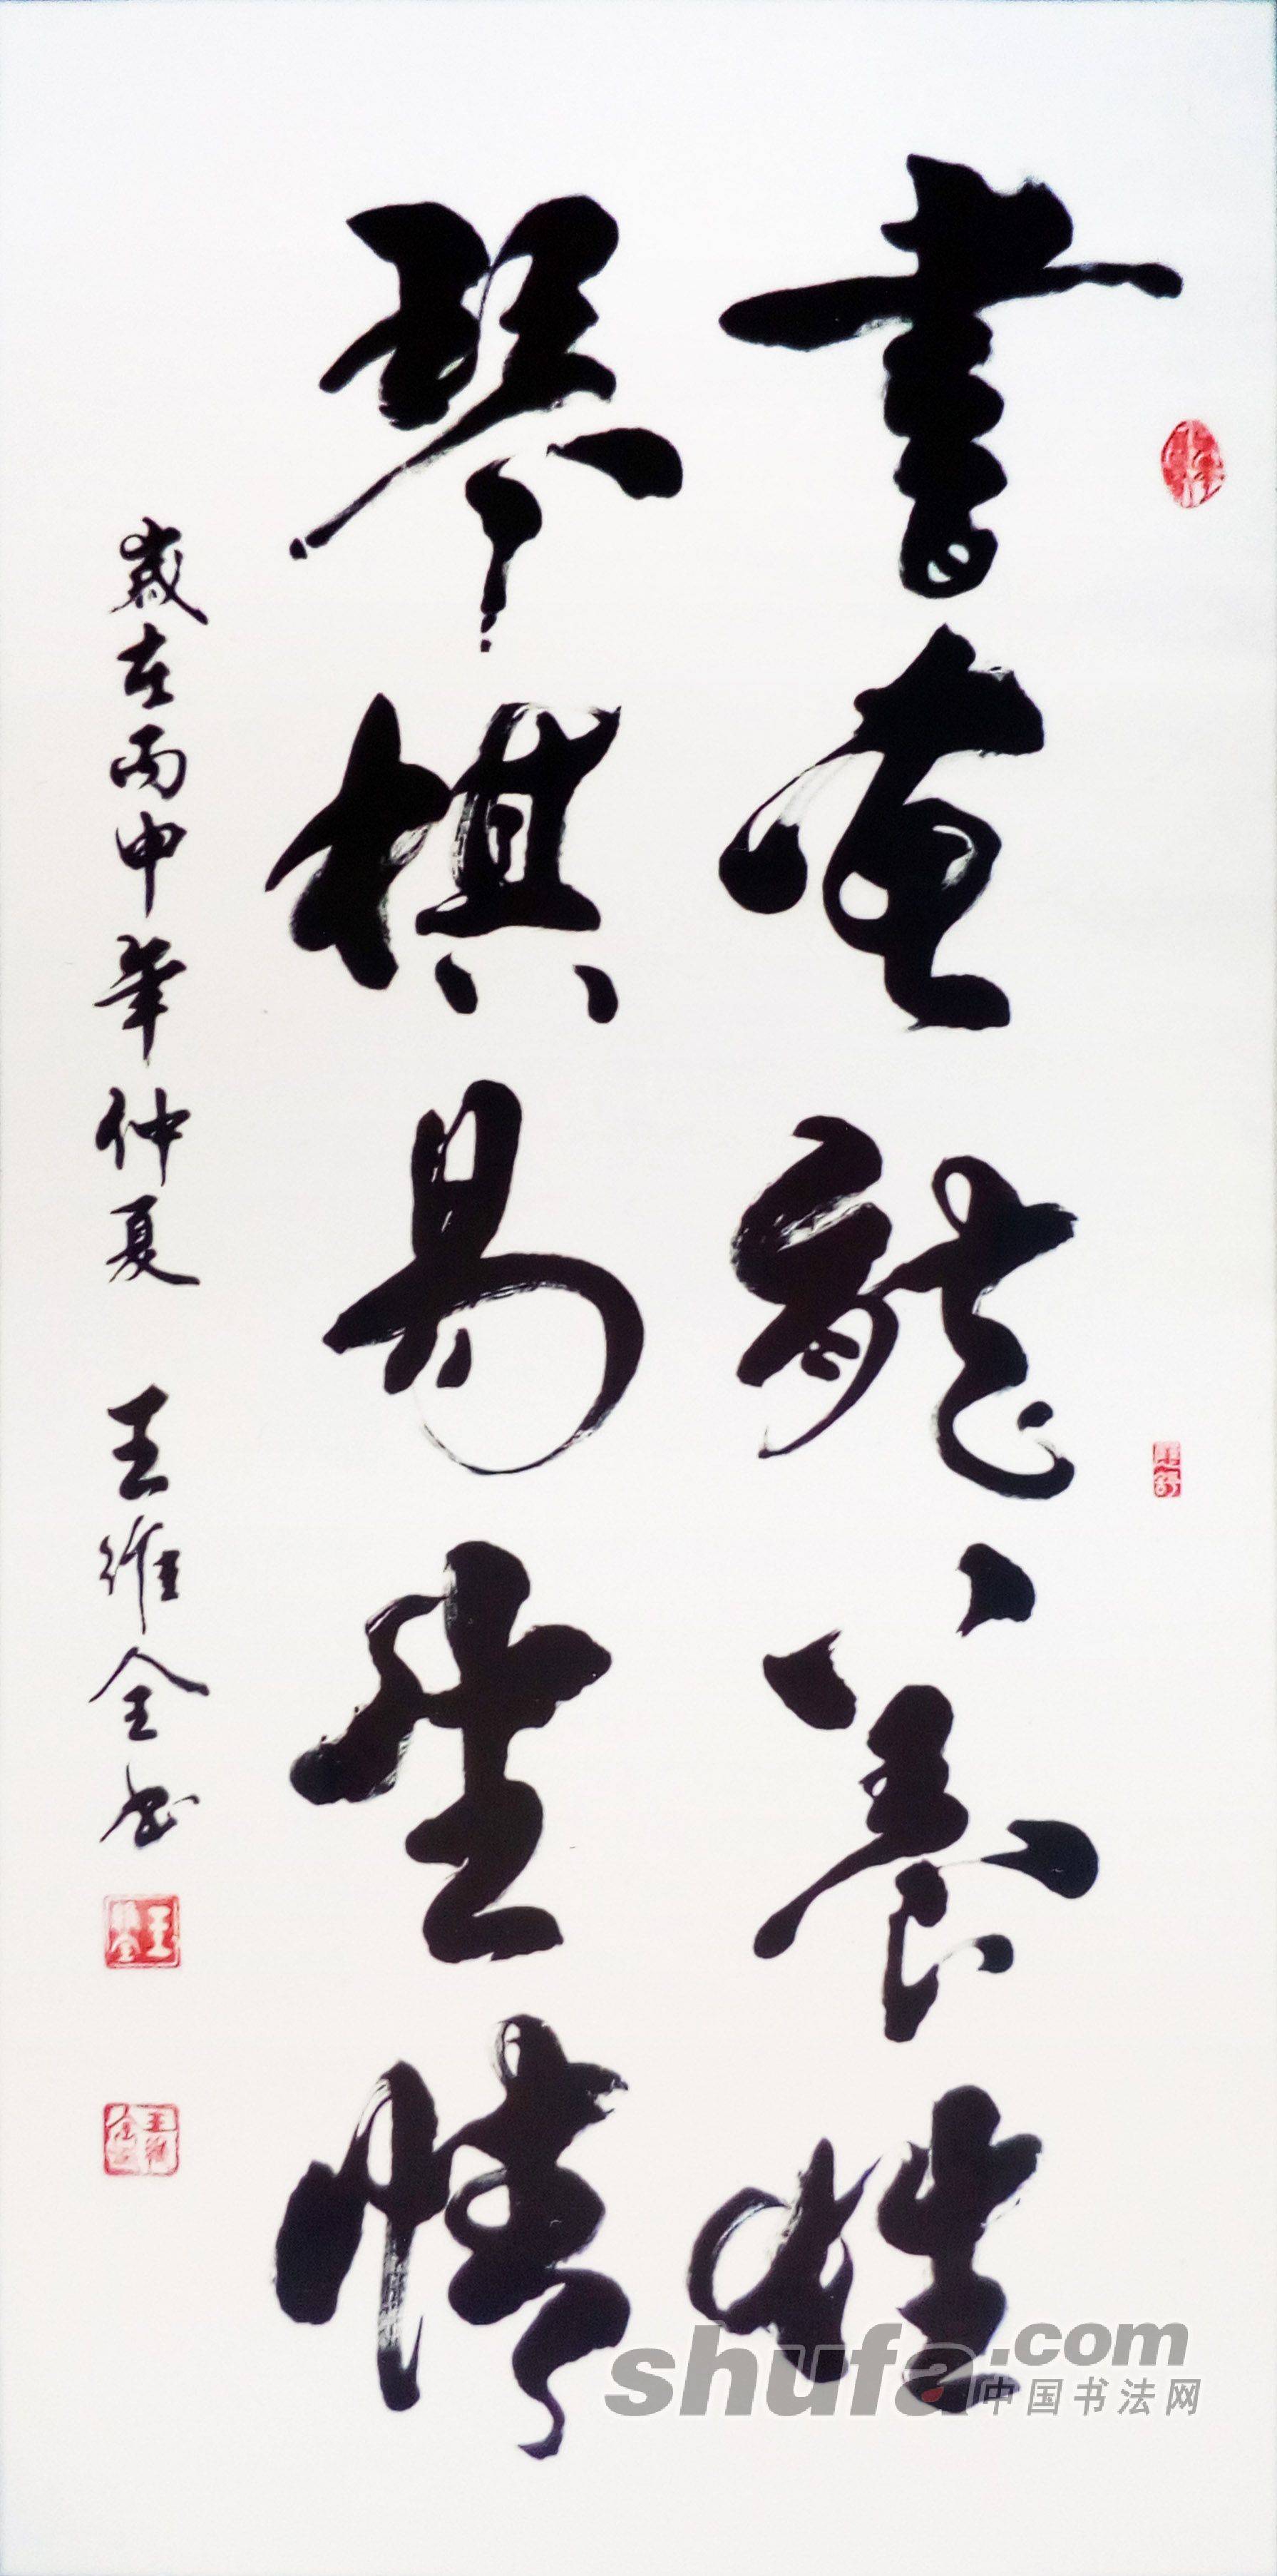 書画能养性
琴棋易生情
歲在丙申年仲夏 王维全书
shufa.com
中国书法网